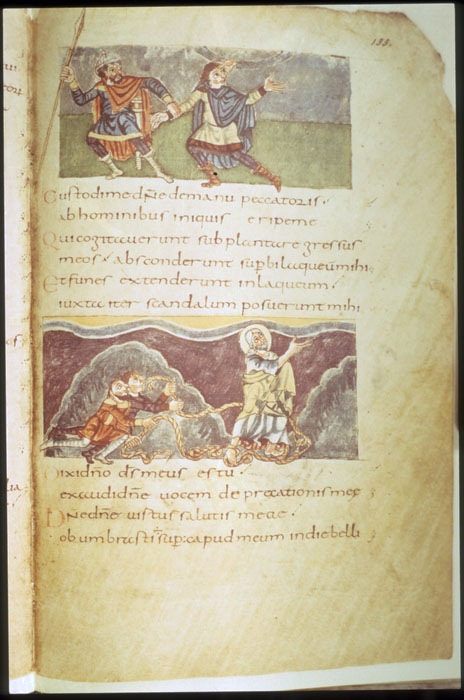 155.
Custodi me dñe de manu peccatoris·
ab hominibus iniquis eripe me
Qui cogitauerunt subplantare gressus
meos· absconderunt sup̄bi laqueū mihi
Et funes extenderunt in laqueum·
iuxta iter scandalum posuerunt mihi
Dixi dño d̄s meus es tu·
exaudi dñe uocem deprecationis meę
Dñe dñe uirtus salutis meae·
obumbrasti sup̄ capud meum in die belli